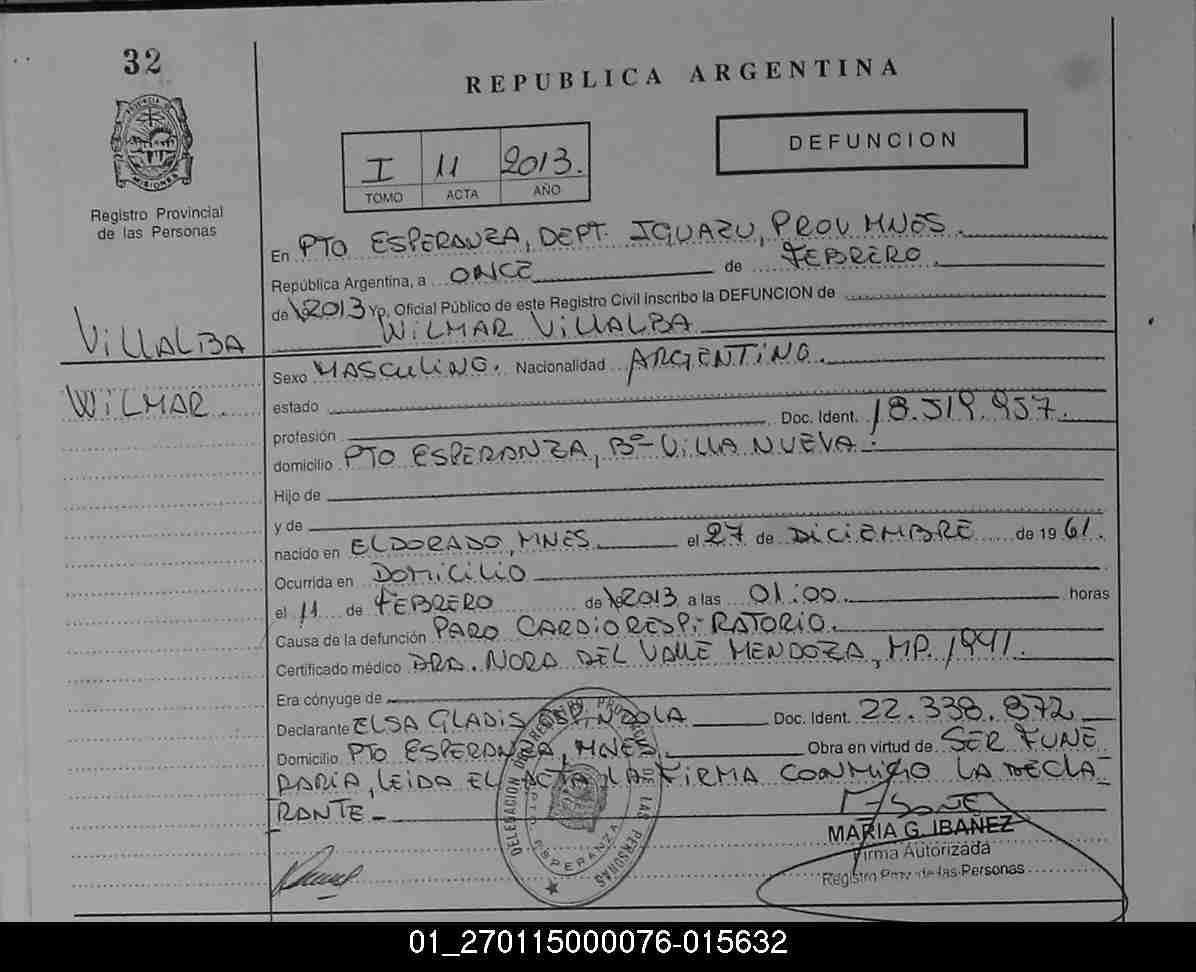 32
REPUBLICA ARGENTINA
PROVINCIA DE
MISIONES
Registro Provincial
de las Personas
I 11 2013.
TOMO ACTA AÑO
DEFUNCION
En PTO ESPERANZA, DEPT. IGUAZU, PROV MNES.
República Argentina, a ONCE de FEBRERO.
de 2013 Yo, Oficial Público de este Registro Civil inscribo la DEFUNCION de
WILMAR VILLALBA
VILLALBA
WILMAR
Sexo MASCULINO. Nacionalidad ARGENTINO.
estado
profesión Doc. Ident. 18.519.957.
domicilio PTO ESPERANZA, Bº VILLA NUEVA.
Hijo de
y de
nacido en ELDORADO, MNES el 27 de DICIEMBRE de 1961.
Ocurrida en DOMICILIO
el 11 de FEBRERO de 2013 a las 01:00. horas
Causa de la defunción PARO CARDIORESPIRATORIO.
Certificado médico DRA. NORA DEL VALLE MENDOZA, MP. 1991.
Era cónyuge de
Declarante ELSA GLADIS ESPINDOLA Doc. Ident. 22.338.872
Domicilio PTO ESPERANZA, MNES. Obra en virtud de SER FUNE
RARIA, LEIDA EL ACTA LA FIRMA CONMIGO LA DECLA-
RANTE-
DELEGACION DEL REGISTRO PROVINCIAL DE LAS PERSONAS
PTO. ESPERANZA
MARIA G. IBAÑEZ
Firma Autorizada
Registro Prov. de las Personas
01_270115000076-015632